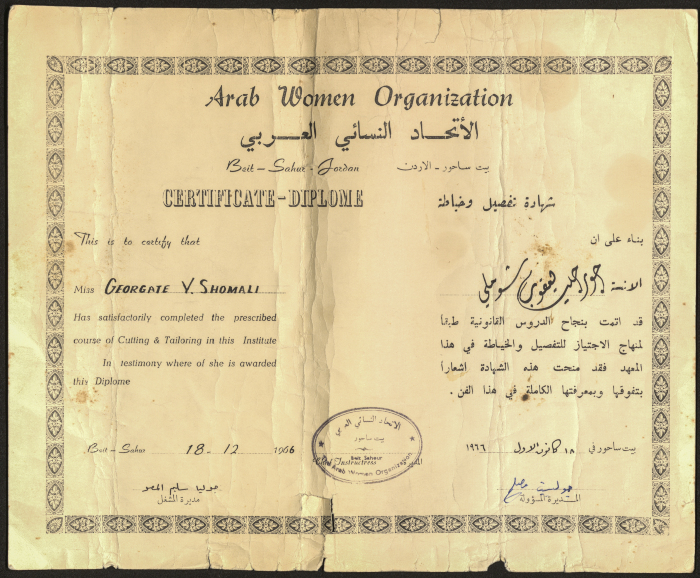 Arab Women Organization
الأتحـــاد النسائي العـــربي
Beit - Sahur - Jordan
بيت ساحور - الاردن
CERTIFICATE-DIPLOME
شهادة تفصيل وخياطة
This is to certify that
Miss GEORGATE V. SHOMALI
Has satisfactorily completed the prescribed
course of Cutting & Tailoring in this Institute
In testimony where of she is awarded
this Diplome
بناء على ان
الانسة جورجيت يعقوب شوملي
قد اتمت بنجاح الدروس القانونية طبقا
لمنهاج الاجتياز للتفصيل والخياطة في هذا
المعهد فقد منحت هذه الشهادة اشعاراً
بتفوقها وبمعرفتها الكاملة في هذا الفن .
Beit - Sahur 18-12 1966
بيت ساحور في ١٨ كانون الاول ١٩٦٦
الاتحاد النسائي العربي
بيت ساحور
Beit Sahour
The Arab Women Organization
Instructress
جوليا سليم
مديرة المشغل
المديرة المسؤولة